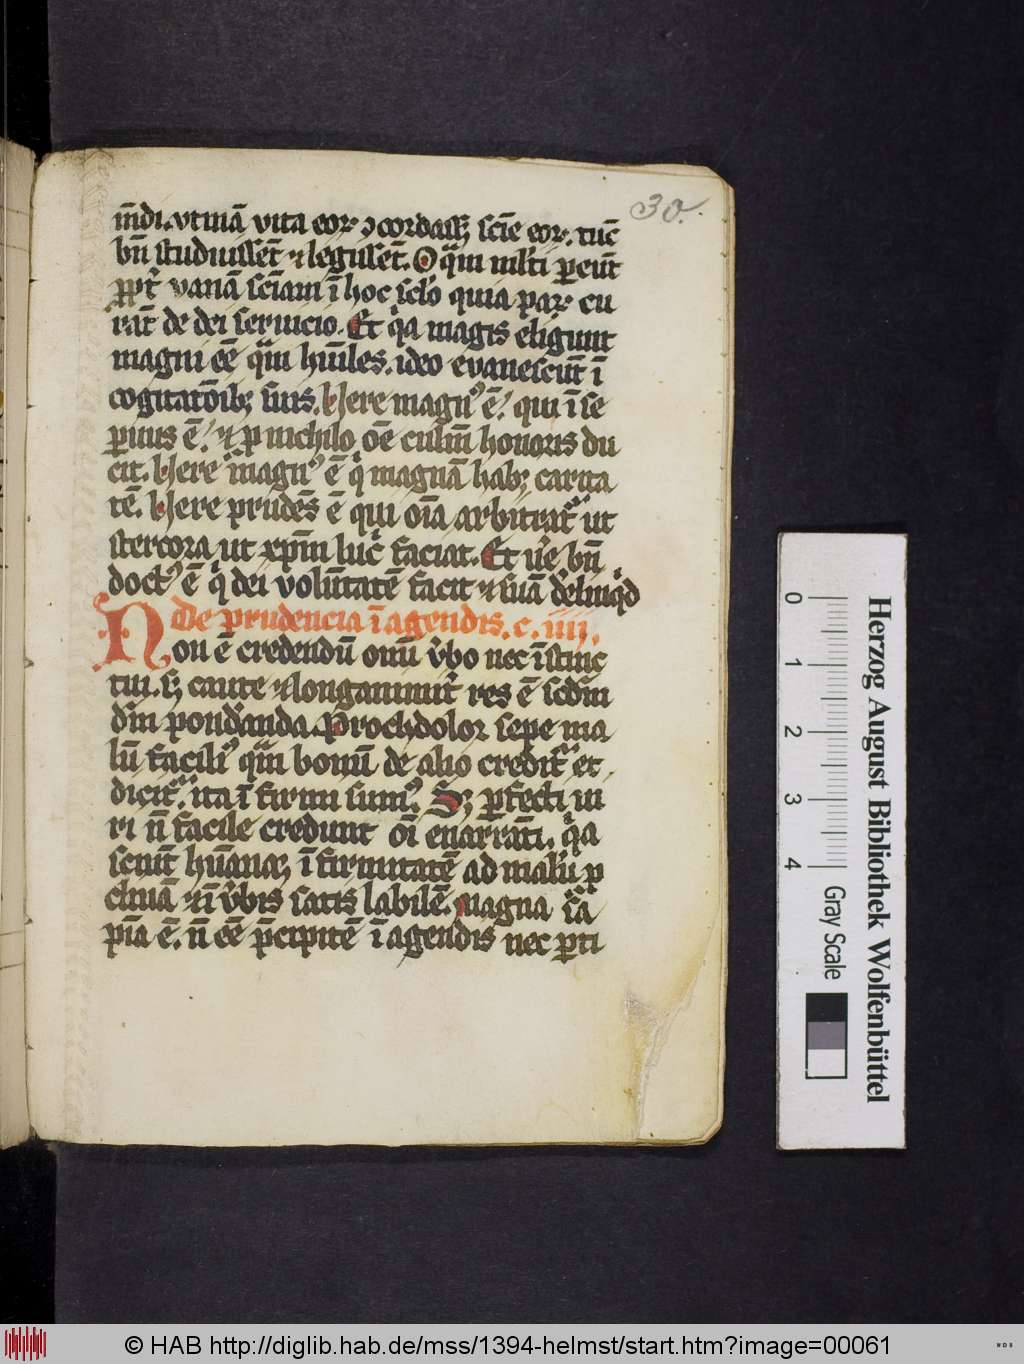 30.
m̄di. vtinā vita eoꝝ ꝯcordass; scīe eoꝝ. tūc
bn̄ studuissēt ⁊ legissēt. O qͣm ml̄ti ꝑeūt
ꝓpt̄ vanā scīam ī hoc sc̄lo quia paꝝ cu
rāt de dei seruicio. Et qͥa magis eligunt
magni eē qͣm hūiles. ideo evanescūt ī
cogitatōib; suis. Vere magnꝰ ē. qui ī se
ꝑuus ē. ⁊ ꝓ nichilo oē culm̄ honoris du
cit. Vere magnꝰ ē qͥ magnā hab; carita
tē. Vere prudēs ē qui oīa arbitratͬ ut
stercora ut xp̄m luc̄ faciat. Et ūe bn̄
doctꝰ ē qͥ dei volūtatē facit ⁊ suā delinqͥd
De prudencia ī agendis. c. iiij.
Non ē credendū om̄ v̄bo nec īstinc
tui. s; caute ⁊ longanimit̄ res ē scd̄m
dm̄ pondāanda. Prochdolor sepe ma
lū faciliꝰ qͣm bonū de alio creditͬ et
dicitͬ. ita ī firmi sumꝰ. S; ꝑfecti ui
ri n̄ facile credunt oī enarrāti. qͥa
sciūt hūanaꝫ ī firmitatē ad malū ꝓ
cliuā ⁊ ī v̄bis satis labilē. Magna sa
pīa ē. n̄ eē p̄cipitē ī agendis nec ꝑti
0 1 2 3 4
Gray Scale
Herzog August Bibliothek Wolfenbüttel
© HAB http://diglib.hab.de/mss/1394-helmst/start.htm?image=00061